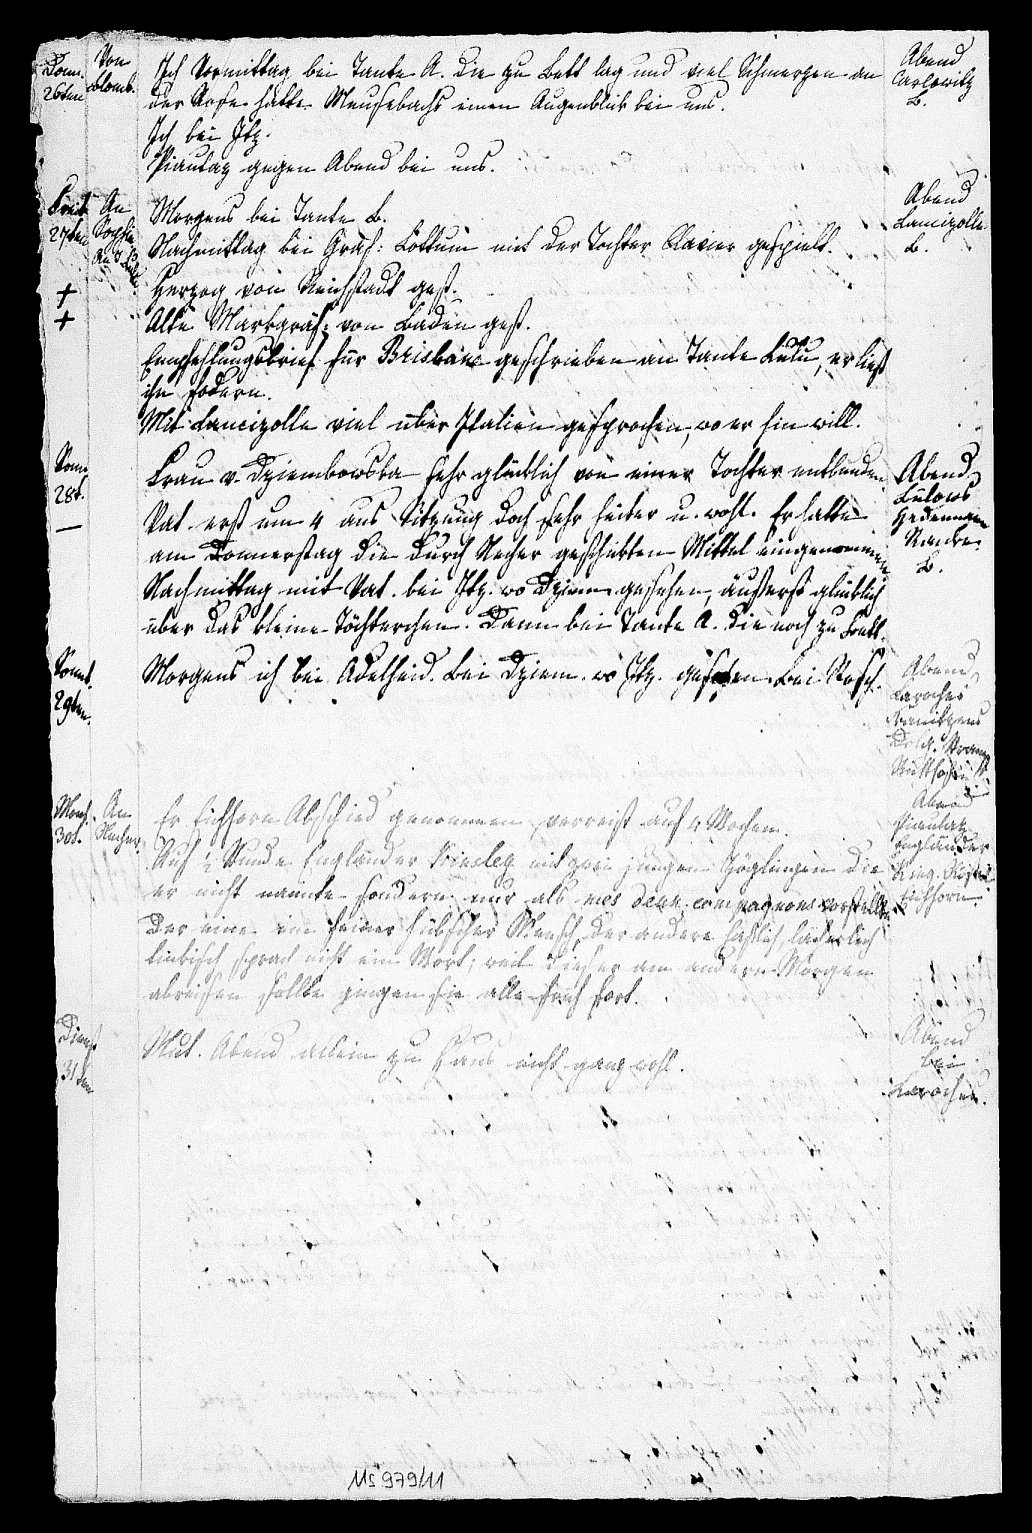 Donn.
26ten
Von
Blomb.
Ich Vormittag bei Tante A. die zu Bett lag und viel Schmerzen an
der Rose hatte Meusebachs einen Augenblick bei uns.
Ich bei Itz.
Piautaz gegen Abend bei uns.
Abend
Carlowitz
B.
Freit
27ten
An
Sophie
Morgens bei Tante B.
Nachmittag bei Gräf: Lottum mit der Tochter Clavier gespielt.
+ Herzog von Reichstadt gest.
+ Alte Markgräf: von Baden gest.
Empfehlungsbrief für Brisbane geschrieben an Tante Lulu, er ließ
ihn fodern.
Mit Lancizolle viel über Italien gesprochen, wo er hin will.
Abend
Lancizolle
B.
Sonn
28t.
—
Frau v. Dziembowska sehr glücklich von einer Tochter entbunden
Vat. erst um 4 aus Sitzung doch sehr heiter u. wohl. Er hatte
am Donnerstag die durch Necher geschickten Mittel eingenommen
Nachmittag mit Vat. bei Itz. wo Dziem gesehen, äußerst glücklich
über das kleine Töchterchen. Dann bei Tante A. die noch zu Bett.
Abend
Bülows
Hedemann
B.
Sonnt.
29ten.
Morgens ich bei Adelheid. Bei Dziem. wo Itz. gesehen. Bei Rosch.
Abend
Laroches
Mont.
30t.
An
Necher
Er Eichhorn Abschied genommen, verreist auf 4 Wochen.
Auf ½ Stunde Engländer mit zwei jungen Zöglingen die
er nicht nannte sondern nur als mes deux compagnons vorstellte
der eine ein feiner hübscher Mensch, der andere häßlich, lächerlich
linkisch sprach nicht ein Wort; weil dieser am andern Morgen
abreisen sollte gingen sie alle früh fort.
Abend
Piautaz
Engländer
Eichhorn.
Dienst
31ten
Mut. Abend allein zu Haus nicht ganz wohl.
Abend
bei
Laroches.
MS 979/11